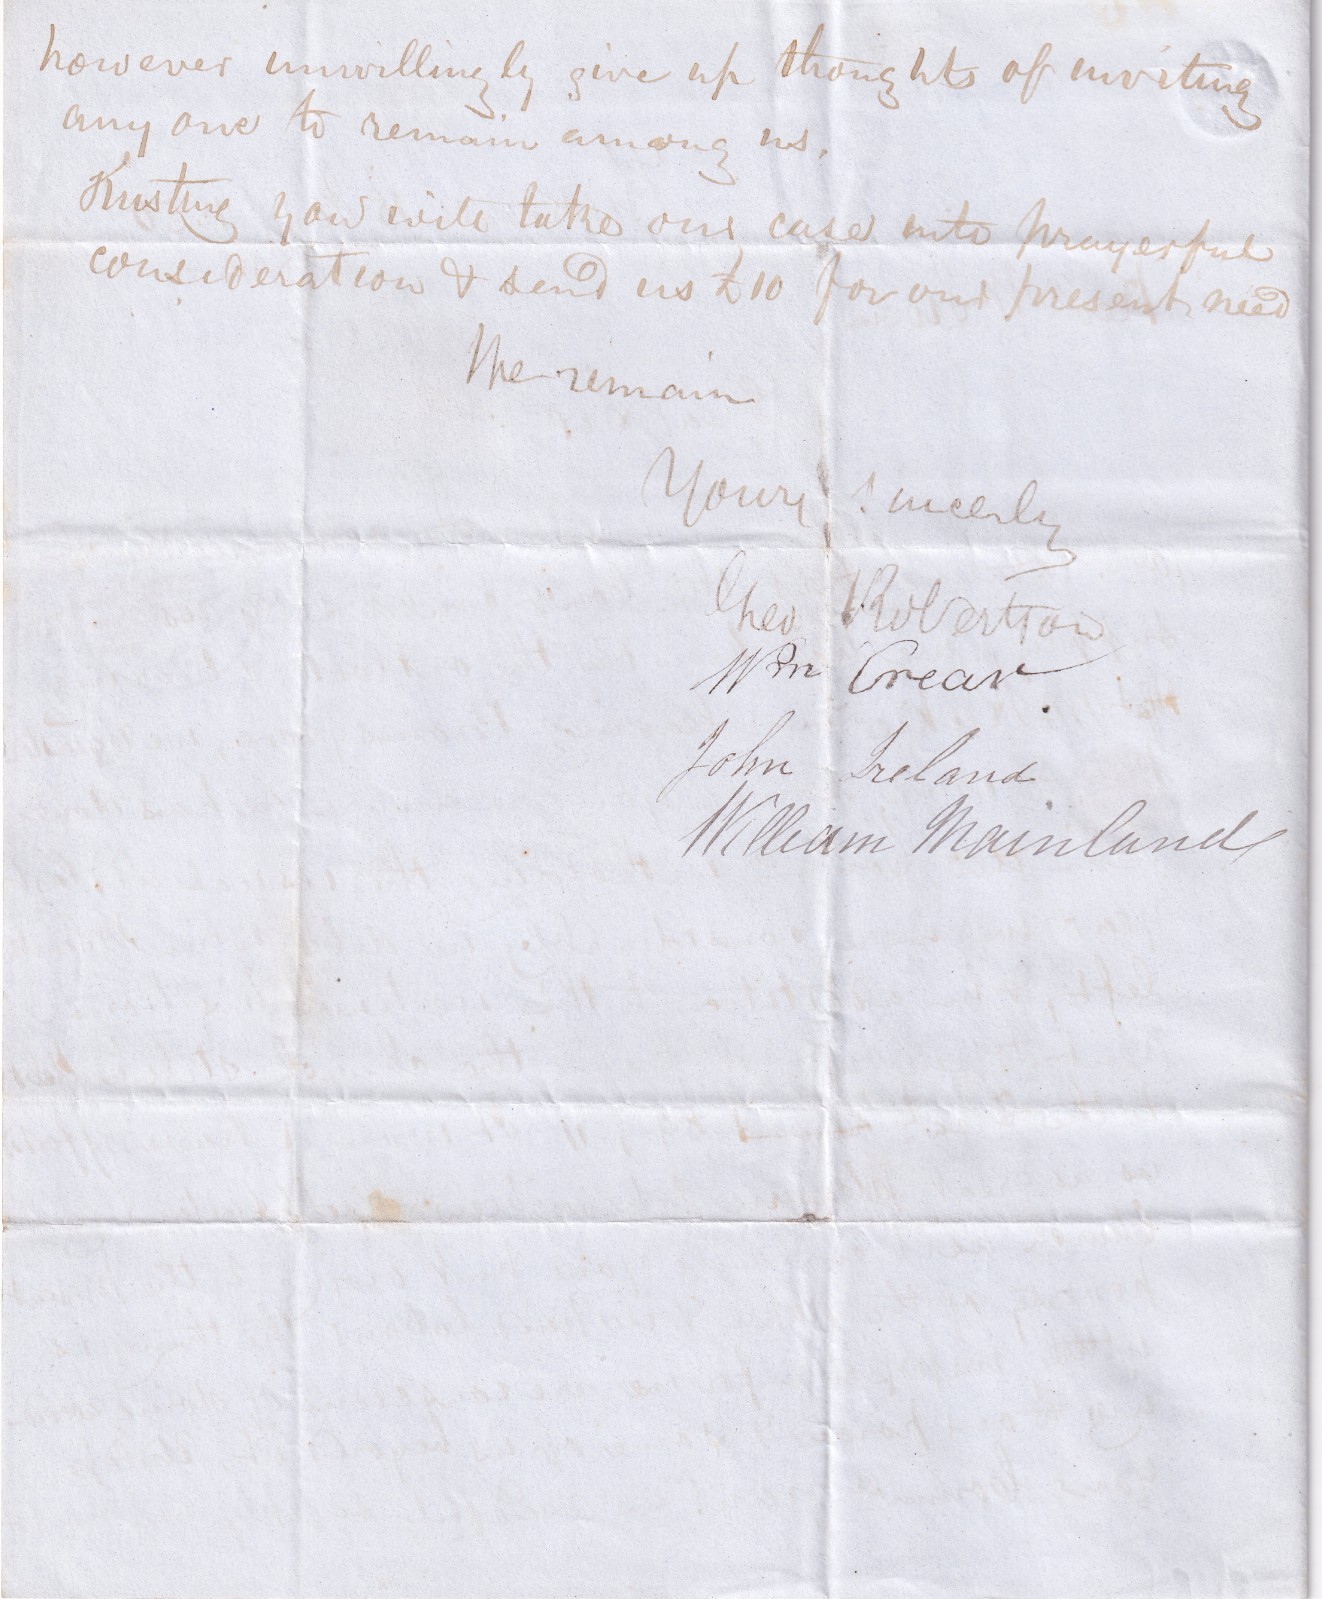 however unwillingly give up thoughts of inviting
any one to remain among us.
Trusting you will take our case into prayerful
consideration & send us £10 for our present need
We remain
Yours sincerly
Robertson
Wm Crear
John Ireland
William Mainland